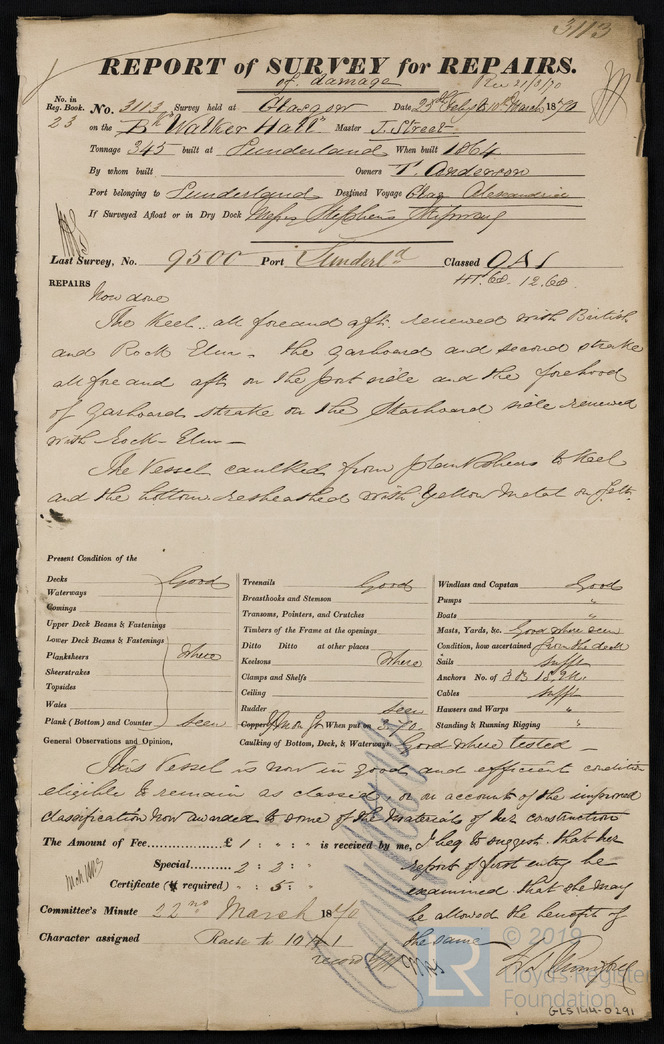 3113
REPORT of SURVEY for REPAIRS.
of damage
Rec 21/3/70
No. in Reg. Book.
23
No. 3113 Survey held at Glasgow Date 23rd Feby & 10th March 1870
on the Bk "Walker Hall" Master J. Street
Tonnage 345 built at Sunderland When built 1864
By whom built Owners T. Anderson
Port belonging to Sunderland Destined Voyage Alexandria
If Surveyed Afloat or in Dry Dock Messrs Stephens Slipway
Last Survey, No. 9500 Port Sunderld Classed 9A1
HT. 68. 12.68.
REPAIRS
Now done
The Keel all fore and aft renewed with British
and Rock Elm - the garboard and second strake
all fore and aft on the port side and the forehood
of garboard strake on the Starboard side renewed
with Rock Elm -
The Vessel caulked from planksheer to Keel
and the bottom resheathed with Yellow Metal on felt.
Present Condition of the
Decks Good
Waterways
Comings
Upper Deck Beams & Fastenings
Lower Deck Beams & Fastenings
Planksheers where
Sheerstrakes
Topsides
Wales
Plank (Bottom) and Counter seen
Treenails Good
Breasthooks and Stemson
Transoms, Pointers, and Crutches
Timbers of the Frame at the openings
Ditto Ditto at other places
Keelsons where
Clamps and Shelfs
Ceiling
Rudder seen
Copper When put on 3.70
Windlass and Capstan Good
Pumps "
Boats "
Masts, Yards, &c. Good where seen
Condition, how ascertained from the deck
Sails sufft
Anchors No. of 3B 1S, 2K.
Cables sufft
Hawsers and Warps "
Standing & Running Rigging "
General Observations and Opinion, Caulking of Bottom, Deck, & Waterways. Good where tested -
This Vessel is now in good and efficient condition
eligible to remain as classed, or on account of the improved
classification now awarded to some of the materials of her construction
The Amount of Fee £ 1 : " : " is received by me, I beg to suggest that her
Special 2 : 2 : " report of first entry be
Certificate (if required) " : 5 : " examined that she may
Committee's Minute 22nd March 1870 be allowed the benefit of
Character assigned Raise to 10 A 1 the same
record
© 2019
LR
Lloyd's Register
Foundation
GLS144-0291